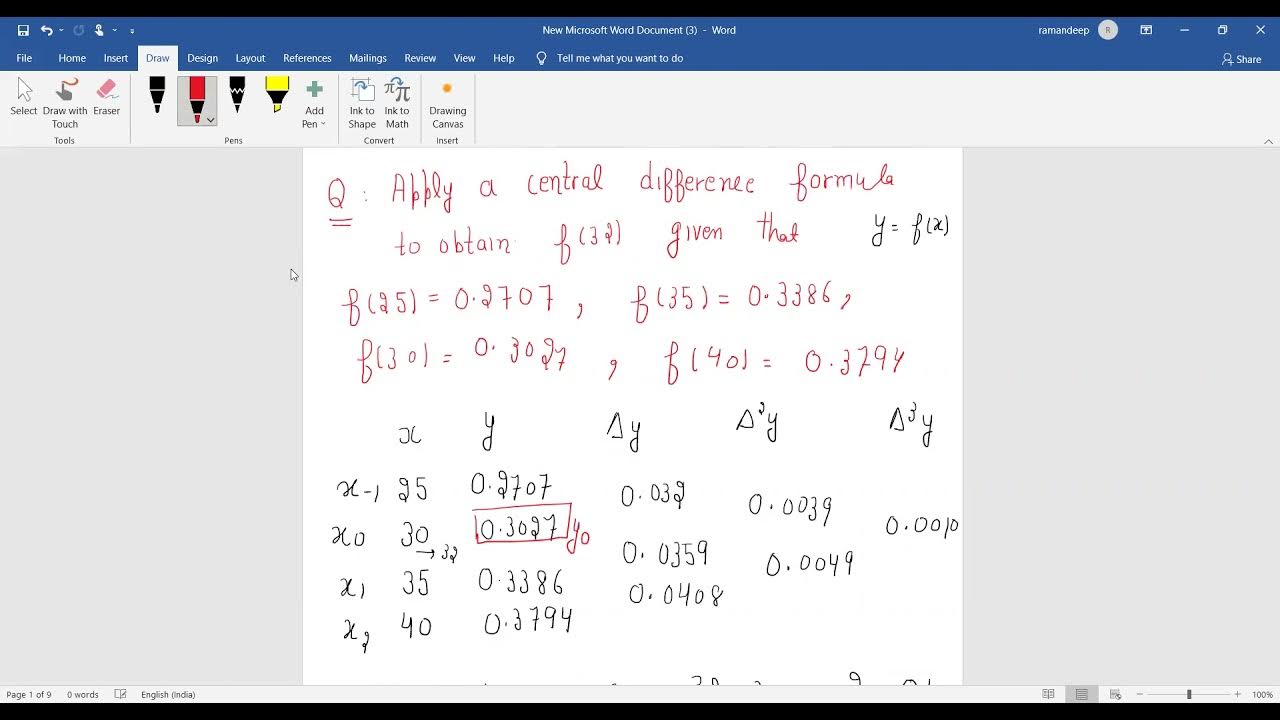 New Microsoft Word Document (3) - Word
ramandeep R
File Home Insert Draw Design Layout References Mailings Review View Help Tell me what you want to do Share
Select Draw with Touch Eraser Add Pen Ink to Shape Ink to Math Drawing Canvas
Tools Pens Convert Insert
Q : Apply a central difference formula
to obtain f(32) given that y = f(x)
f(25) = 0.2707 , f(35) = 0.3386,
f(30) = 0.3027 , f(40) = 0.3794
x y Δy Δ²y Δ³y
x-1 25 0.2707 0.032
0.0039
x0 30 0.3027 y0 0.0010
→ 32 0.0359
0.0049
x1 35 0.3386 0.0408
x2 40 0.3794
Page 1 of 9 0 words English (India) 100%